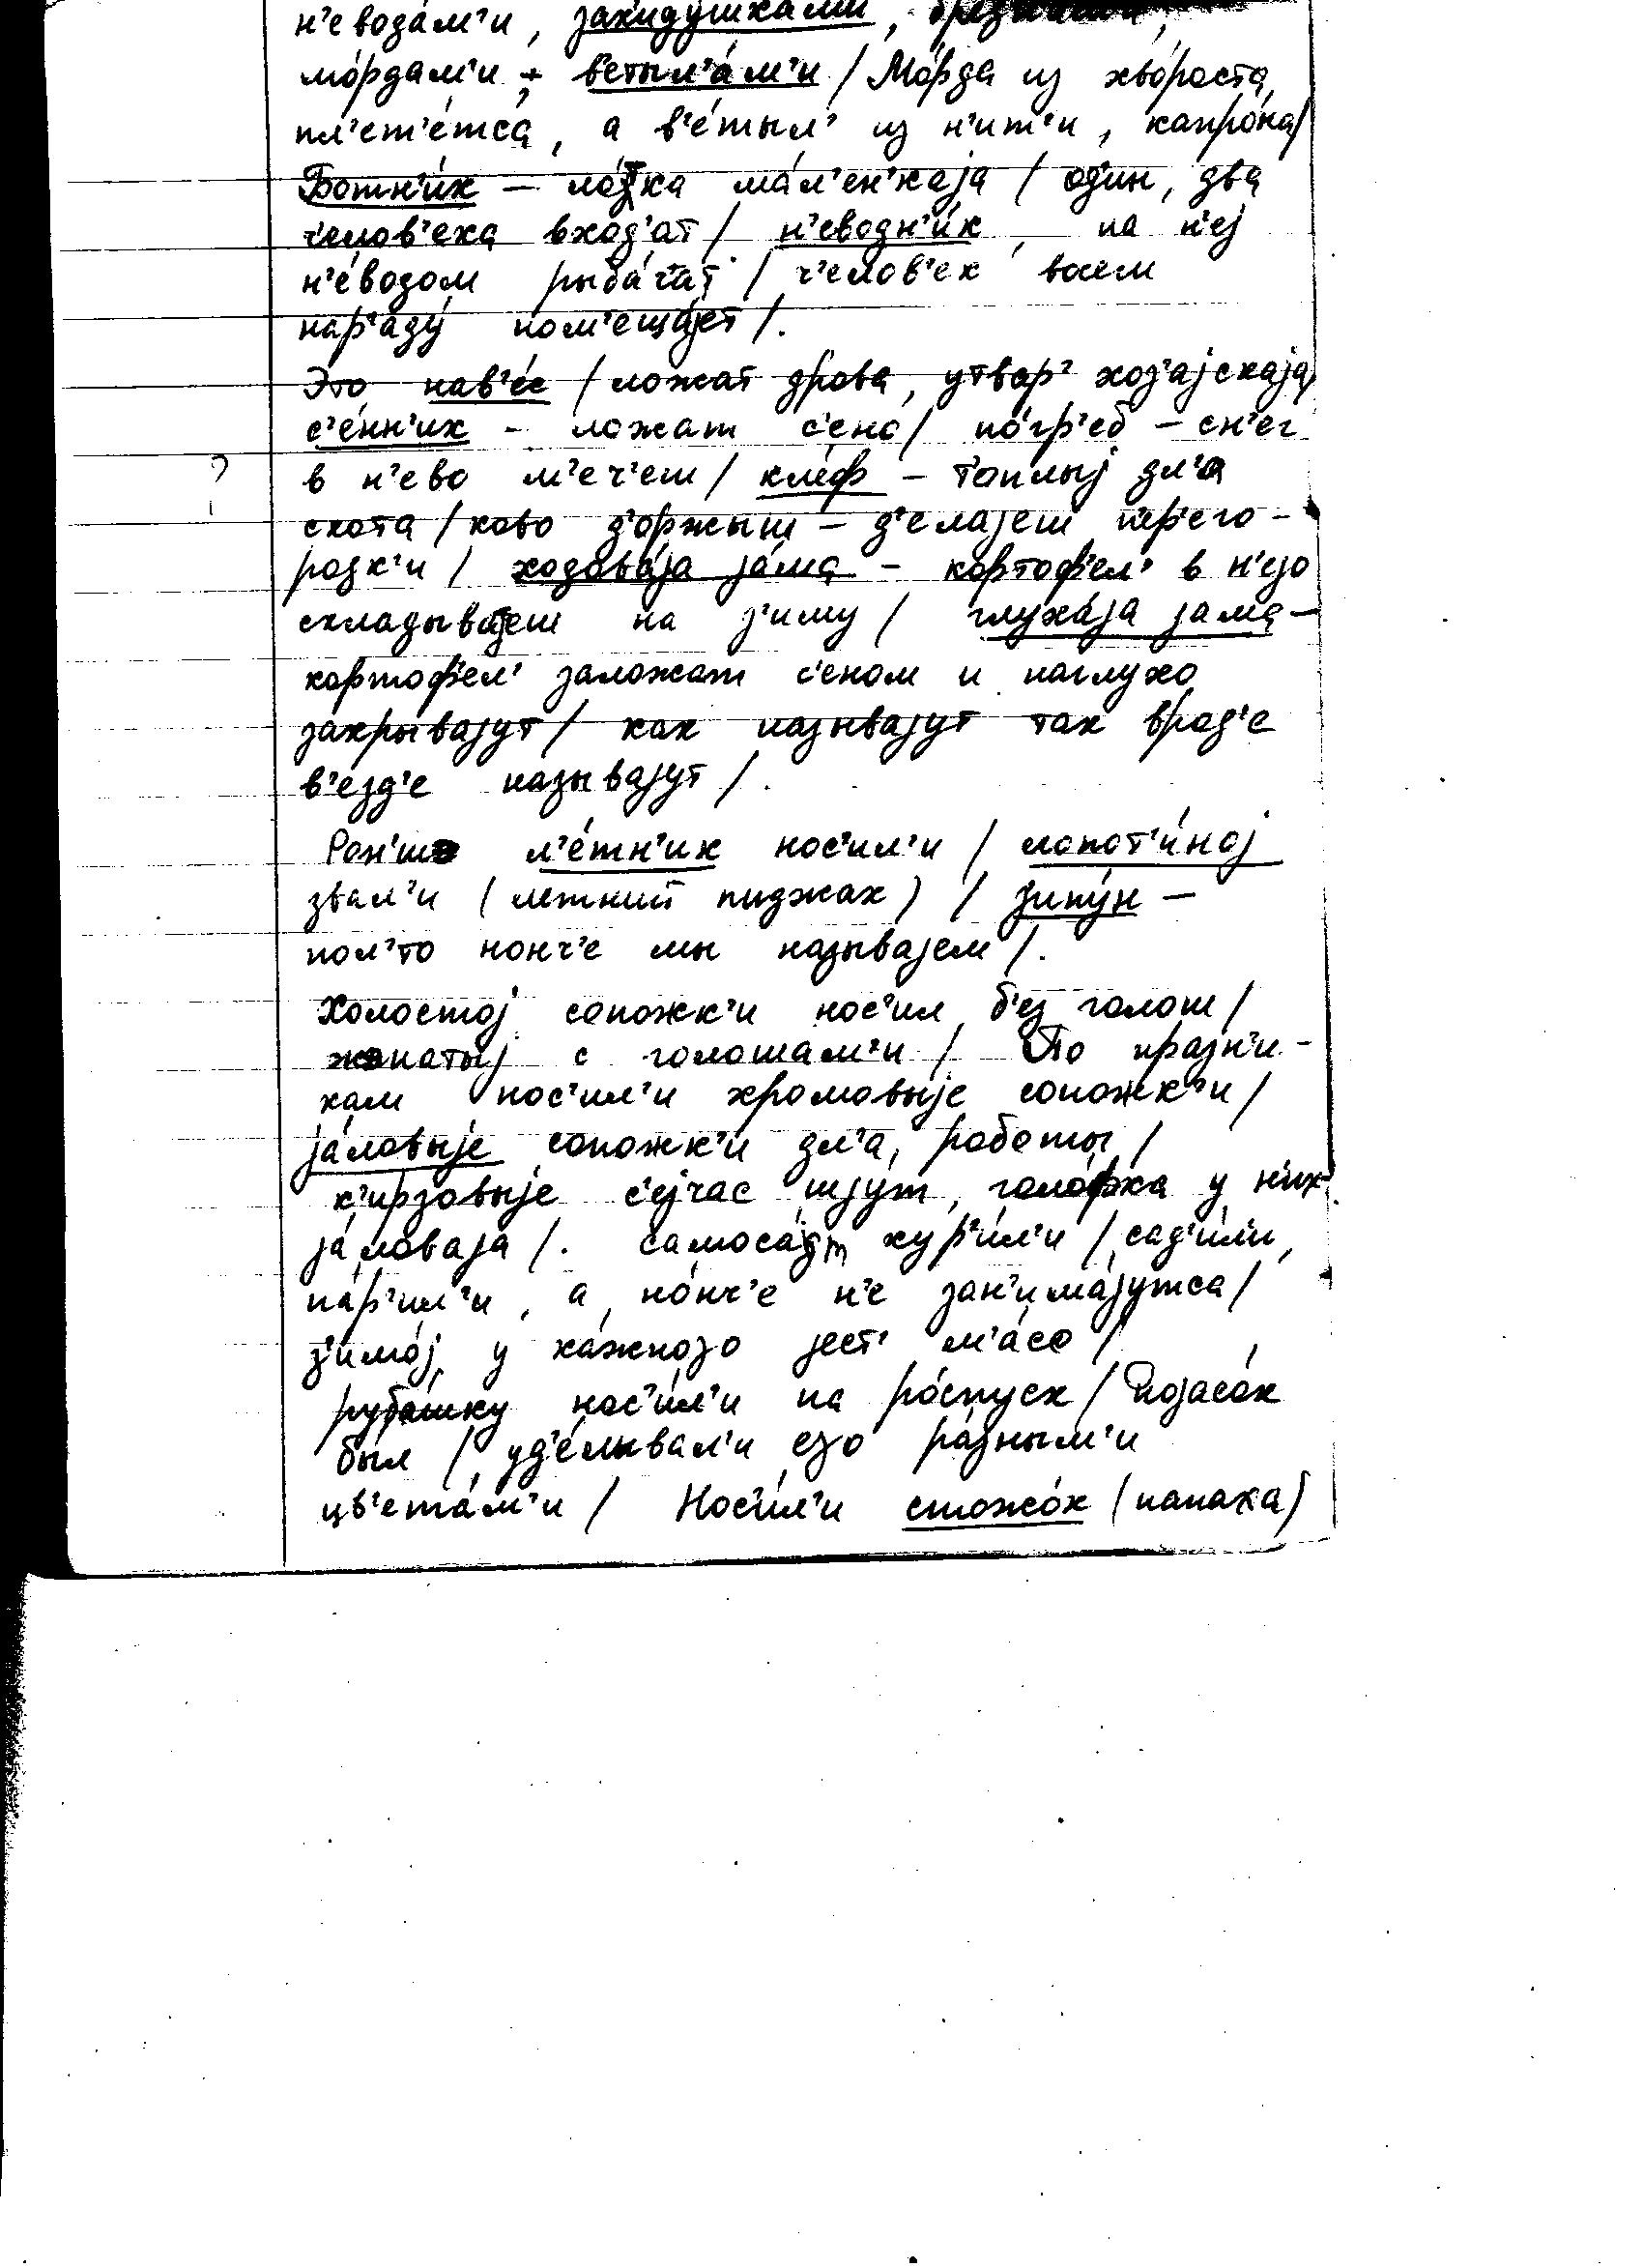 н'евода́м'и, закиду́шками,
мо́рдам'и, в'етыл'а́м'и / Мо́рда из хво́роста
пл'ет'е́тса, а в'е́тыл' из н'ит'и, капро́на/
Ботн'и́к – ло́тка ма́л'ен'каjа / од'ин, два
ч'елов'ека вход'ат / н'еводн'и́к, на н'еj
н'е́водом рыба́ч'ат / ч'елов'ек восем
нар'аду́ пом'еща́jет /.
Это нав'е́с / ложат дрова, утвар' хоз'аjскаjа/
с'е́нн'ик – ложат с'ено / по́гр'еб – сн'ег
? в н'ево м'еч'еш / кл'еф – т'оплыj дл'а
скота / ково д'оржыш – д'елаjеш п'ер'его-
родк'и / ходова́jа jа́ма – кортоф'ел' в н'еjо
складываjеш на з'иму / глуха́jа jама –
кортоф'ел' заложат с'еном и наглухо
закрываjут / как называjут так врод'е
в'езд'е называjут /.
Рон'ше л'е́тн'ик нос'ил'и / лопот'и́ноj
звал'и (летний пиджак) / зипу́н –
пол'то нонч'е мы называjем /.
Холостоj сопожк'и нос'ил б'ез голош /
жонатыj с голошам'и / По празн'и-
кам нос'ил'и хромовыjе сопожк'и /
jа́ловыjе сопожк'и дл'а роботы /
к'ирзовыjе с'еjчас шjут, голо́фка у н'их
jа́ловаjа /. самоса́т кур'и́л'и / сад'и́л'и,
па́р'ил'и, а но́нч'е н'е зан'има́jутса /
з'имо́j у ка́жного jест' м'а́со /
руба́шку нос'и́л'и на ро́спуск / Поjасо́к
был / уд'е́лывал'и его ра́зным'и
цв'ета́м'и / Нос'и́л'и стожо́к (папаха)